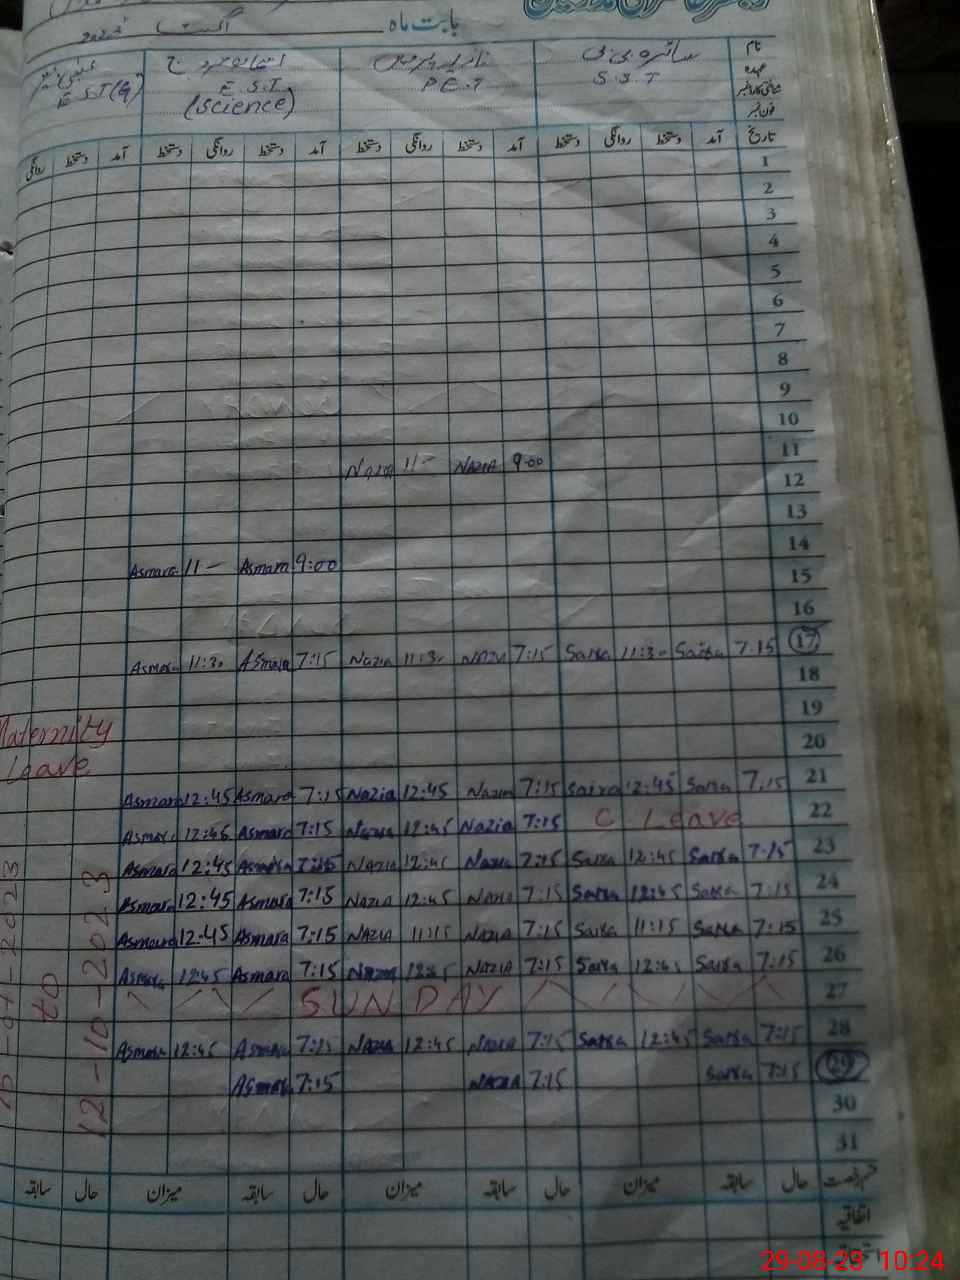 بابت ماہ اگست
نام
عہدہ S.S.T P.E.T E.S.T E.S.T(G)
(Science)
فون نمبر
تاریخ آمد دستخط روانگی دستخط آمد دستخط روانگی دستخط آمد دستخط روانگی دستخط آمد دستخط روانگی
1
2
3
4
5
6
7
8
9
10
11
Nazia 11- NAZIA 9-00
12
13
14
Asmara 11- Asmara 9:00 15
16
Asmara 11:30 Asmara 7:15 Nazia 11:30 Nazia 7:15 Saira 11:30 Saira 7:15 17
18
19
Maternity
20
Leave
Asmara 12:45 Asmara 7:15 Nazia 12:45 Nazia 7:15 Saira 12:45 Saira 7:15 21
Asmara 12:45 Asmara 7:15 Nazia 12:45 Nazia 7:15 C Leave 22
Asmara 12:45 Asmara 7:15 NAZIA 12:45 Nazia 7:15 Saira 12:45 Saira 7:15 23
Asmara 12:45 Asmara 7:15 NAZIA 12:45 NAZIA 7:15 Saira 12:45 Saira 7:15 24
Asmara 12:45 Asmara 7:15 NAZIA 11:15 NAZIA 7:15 Saira 11:15 Saira 7:15 25
Asmara 12:45 Asmara 7:15 Nazia 12:45 NAZIA 7:15 Saira 12:45 Saira 7:15 26
SUNDAY 27
Asmara 12:45 Asmara 7:15 NAZIA 12:45 NAZIA 7:15 Saira 12:45 Saira 7:15 28
Asmara 7:15 NAZIA 7:15 Saira 7:15 29
30
31
to
12-10-2023
حال سابقہ میزان حال سابقہ میزان حال سابقہ میزان حال سابقہ
اتفاقیہ
29-08-23 10:24